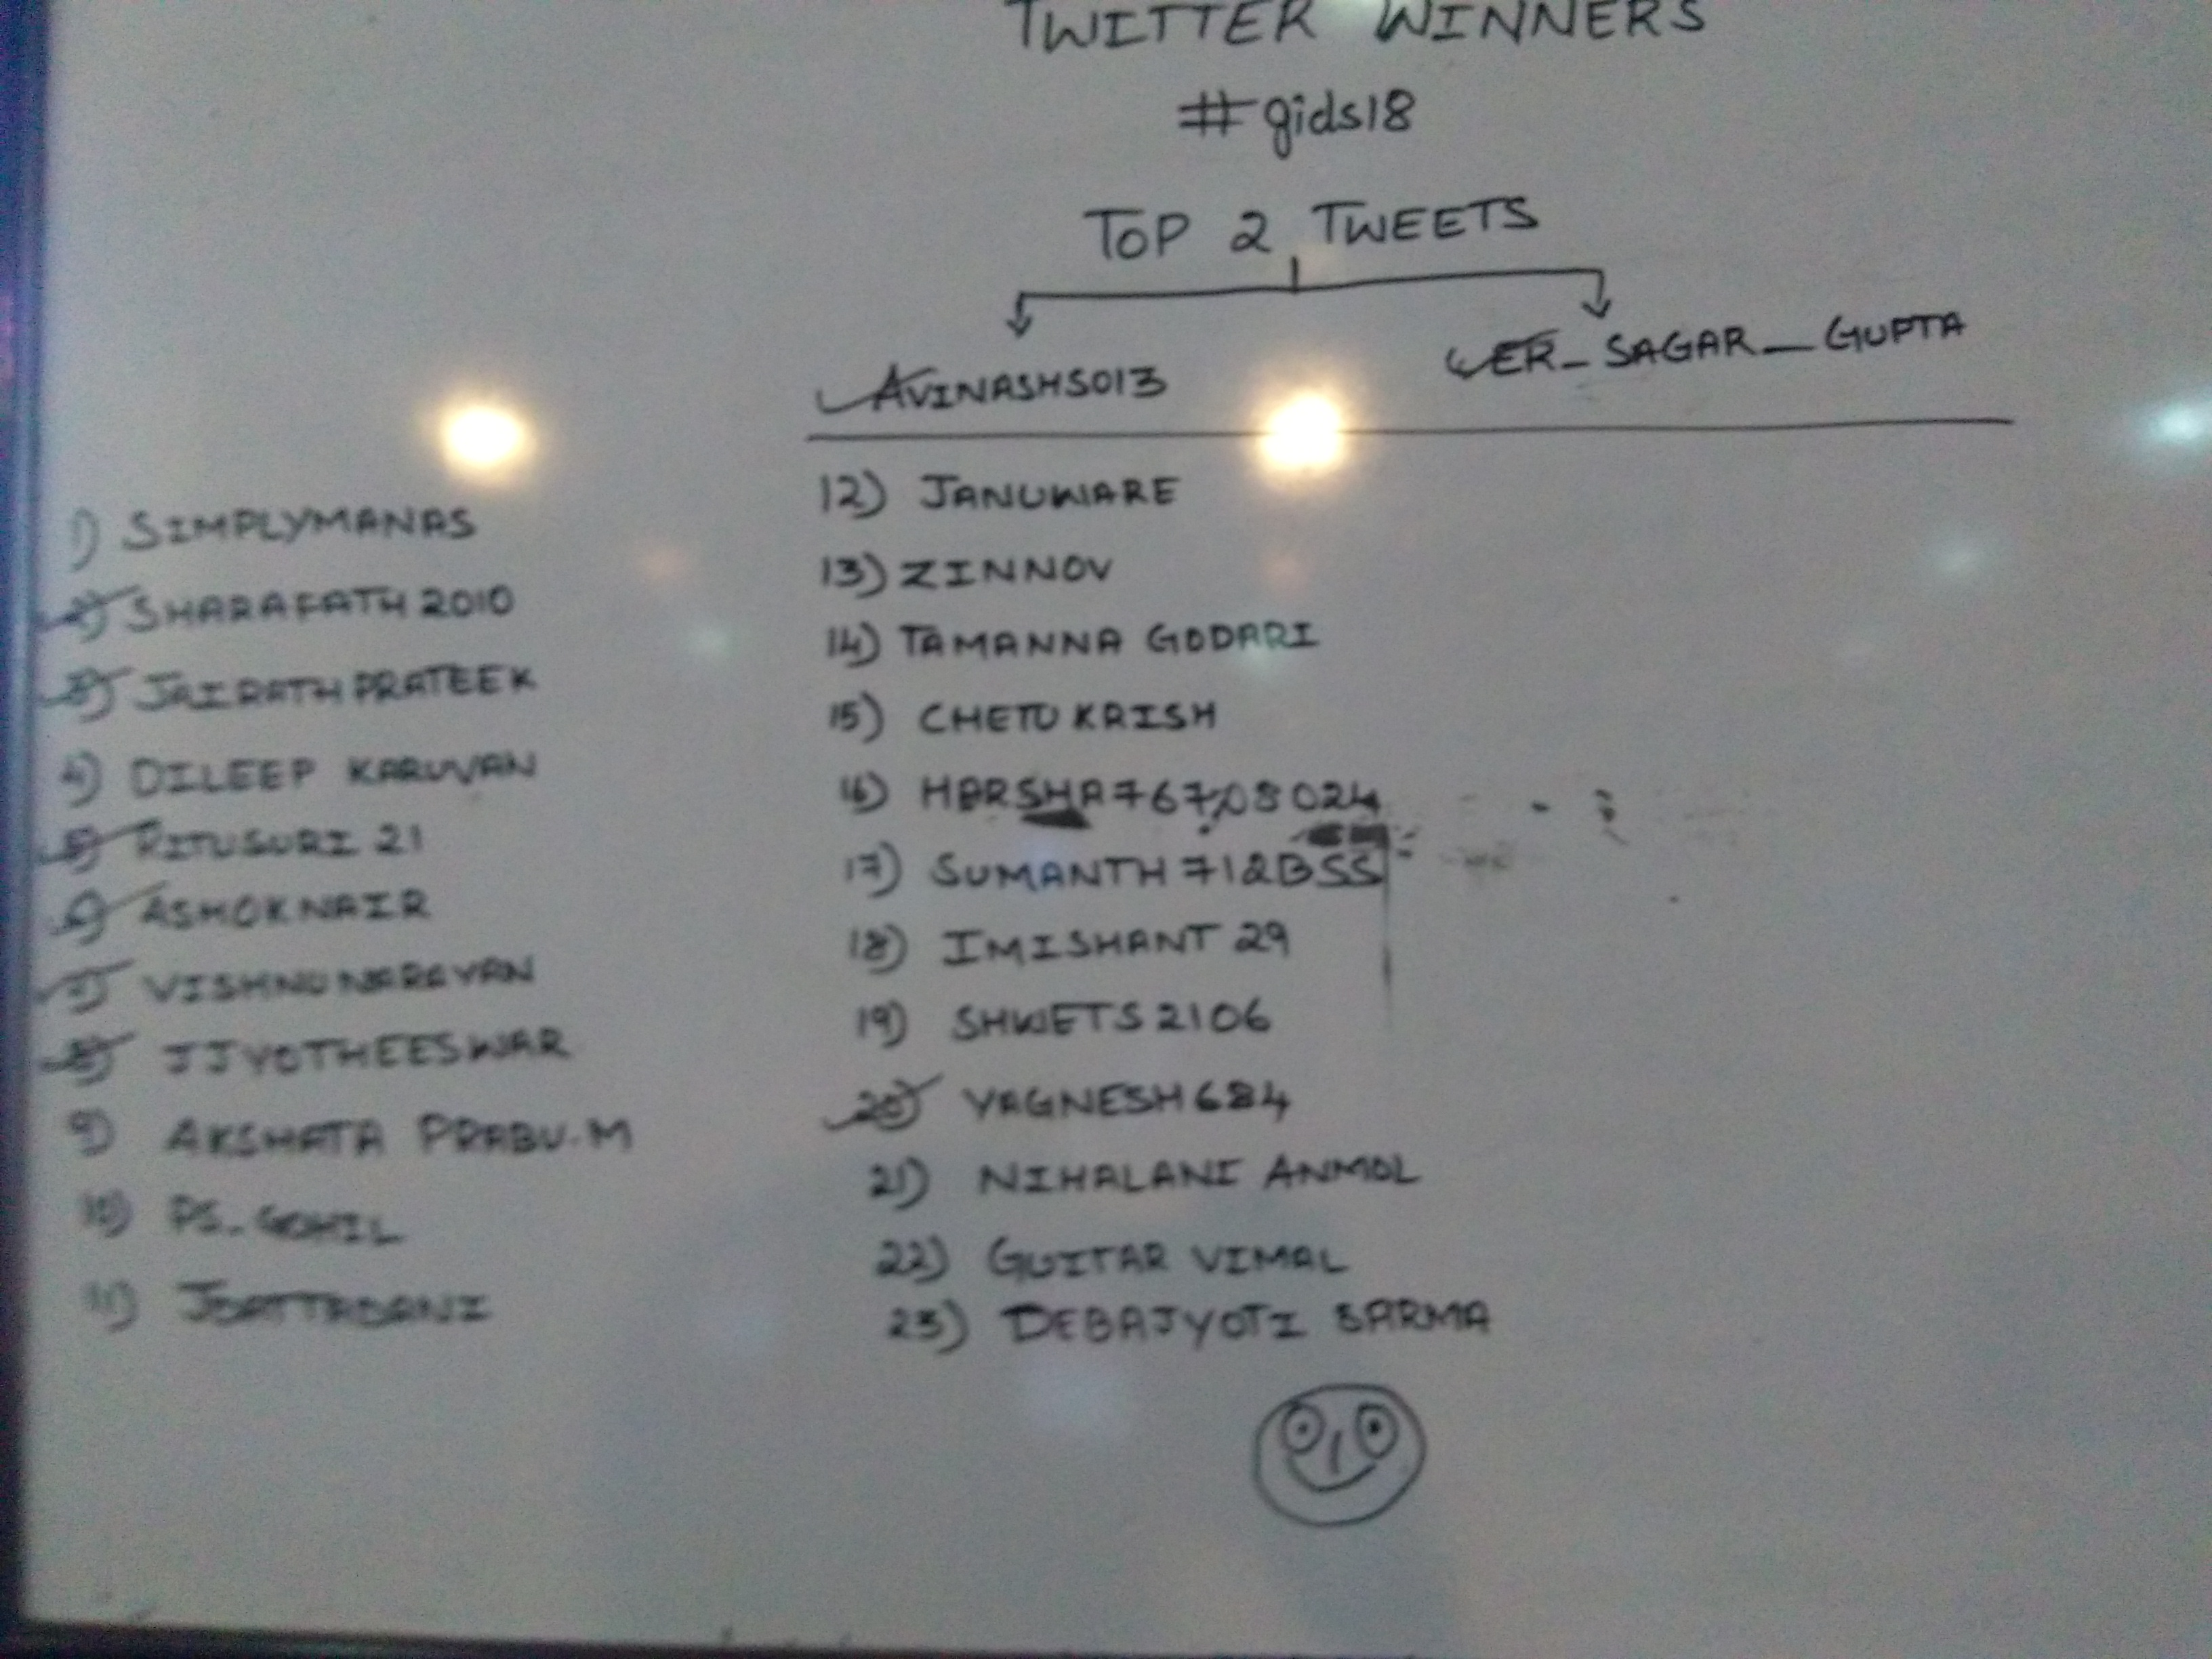 TWITTER WINNERS
#gids18
TOP 2 TWEETS
AVINASHS013 ER_SAGAR_GUPTA
1) SIMPLYMANAS
2) SHARAFATH2010
3) JAIRATHPRATEEK
4) DILEEP KARUVAN
5) RITUSURI 21
6) ASHOKNAIR
7) VISHNUNARAYAN
8) JJYOTHEESWAR
9) AKSHATA PRABU.M
10) PS_GOHIL
11)
12) JANUWARE
13) ZINNOV
14) TAMANNA GODARI
15) CHETU KRISH
16)
17) SUMANTH712BSS
18) IMISHANT 29
19) SHWETS2106
20) YAGNESH684
21) NIHALANI ANMOL
22) GUITAR VIMAL
23) DEBAJYOTI SARMA